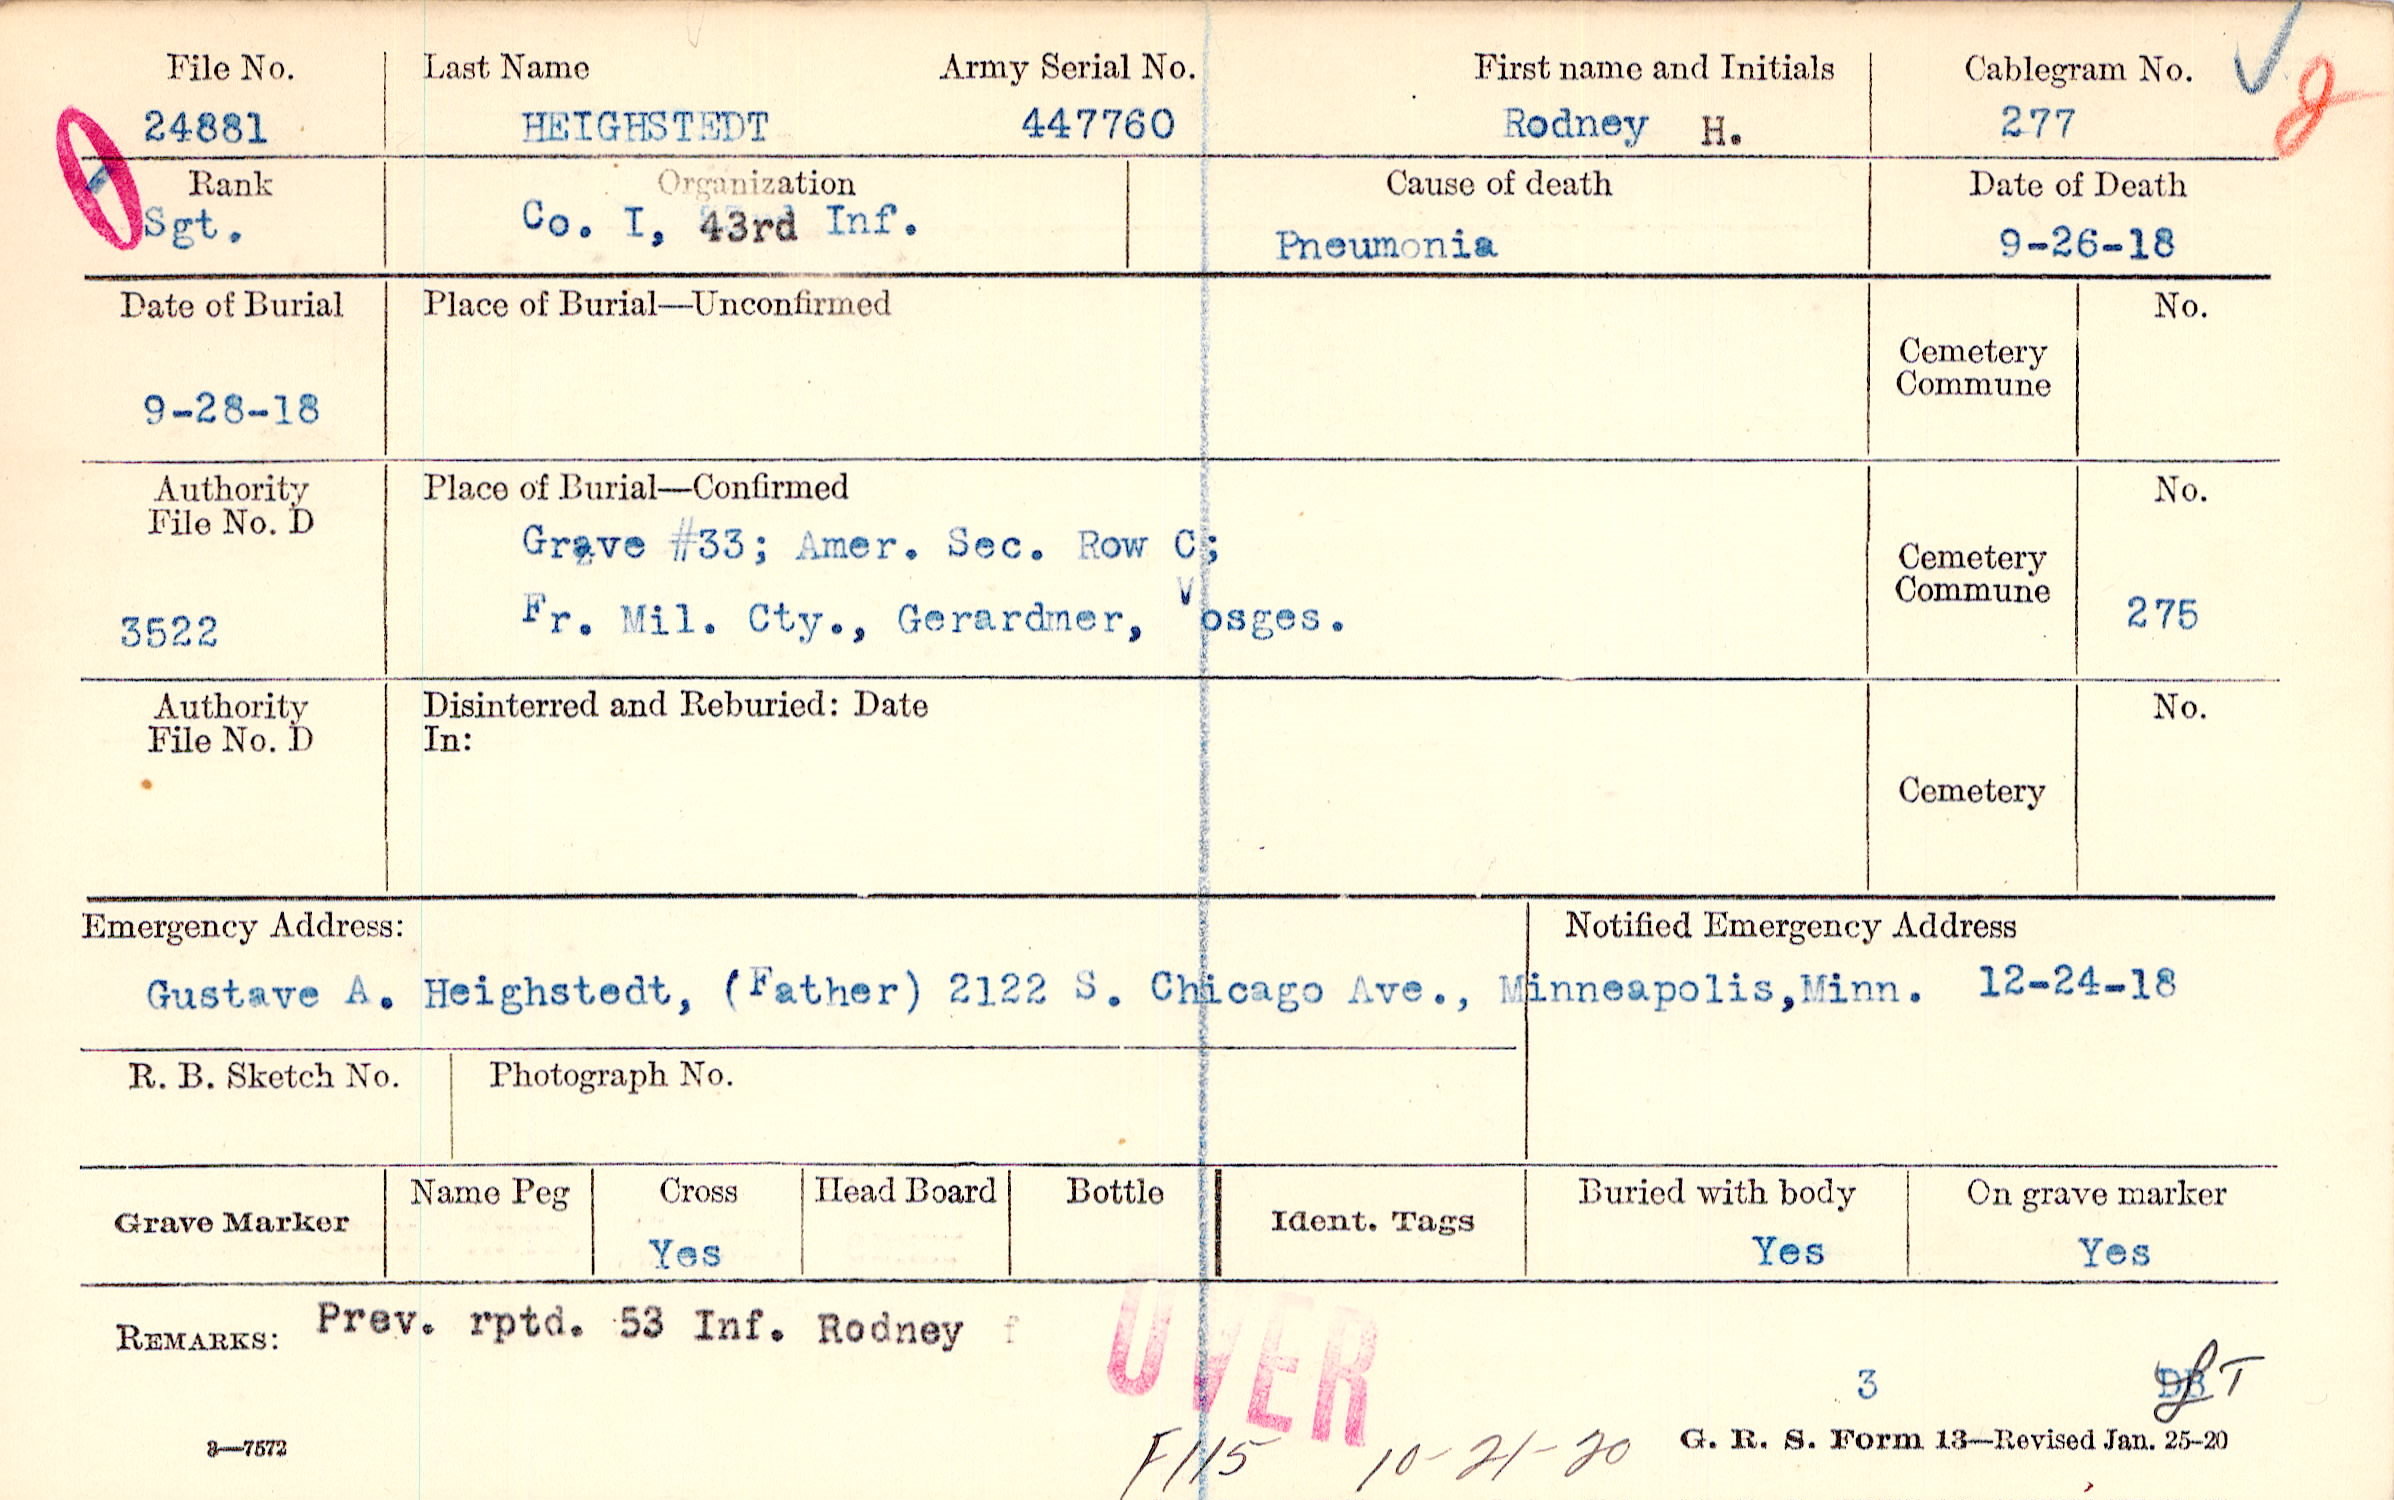 File No. Last Name Army Serial No. First name and Initials Cablegram No.
24881 HEIGHSTEDT 447760 Rodney H. 277
Rank Organization Cause of death Date of Death
Sgt. Co. I, 43rd Inf. Pneumonia 9-26-18
Date of Burial Place of Burial—Unconfirmed No.
Cemetery
Commune
9-28-18
Authority Place of Burial—Confirmed No.
File No. D
Grave #33; Amer. Sec. Row C;
Cemetery
Commune
3522 Fr. Mil. Cty., Gerardmer, Vosges. 275
Authority Disinterred and Reburied: Date No.
File No. D In:
Cemetery
Emergency Address: Notified Emergency Address
Gustave A. Heighstedt, (Father) 2122 S. Chicago Ave., Minneapolis,Minn. 12-24-18
R. B. Sketch No. Photograph No.
Grave Marker Name Peg Cross Head Board Bottle Ident. Tags Buried with body On grave marker
Yes Yes Yes
REMARKS: Prev. rptd. 53 Inf. Rodney f
OVER
3 T
3—7572 G. R. S. Form 13—Revised Jan. 25-20
F115 10-21-20